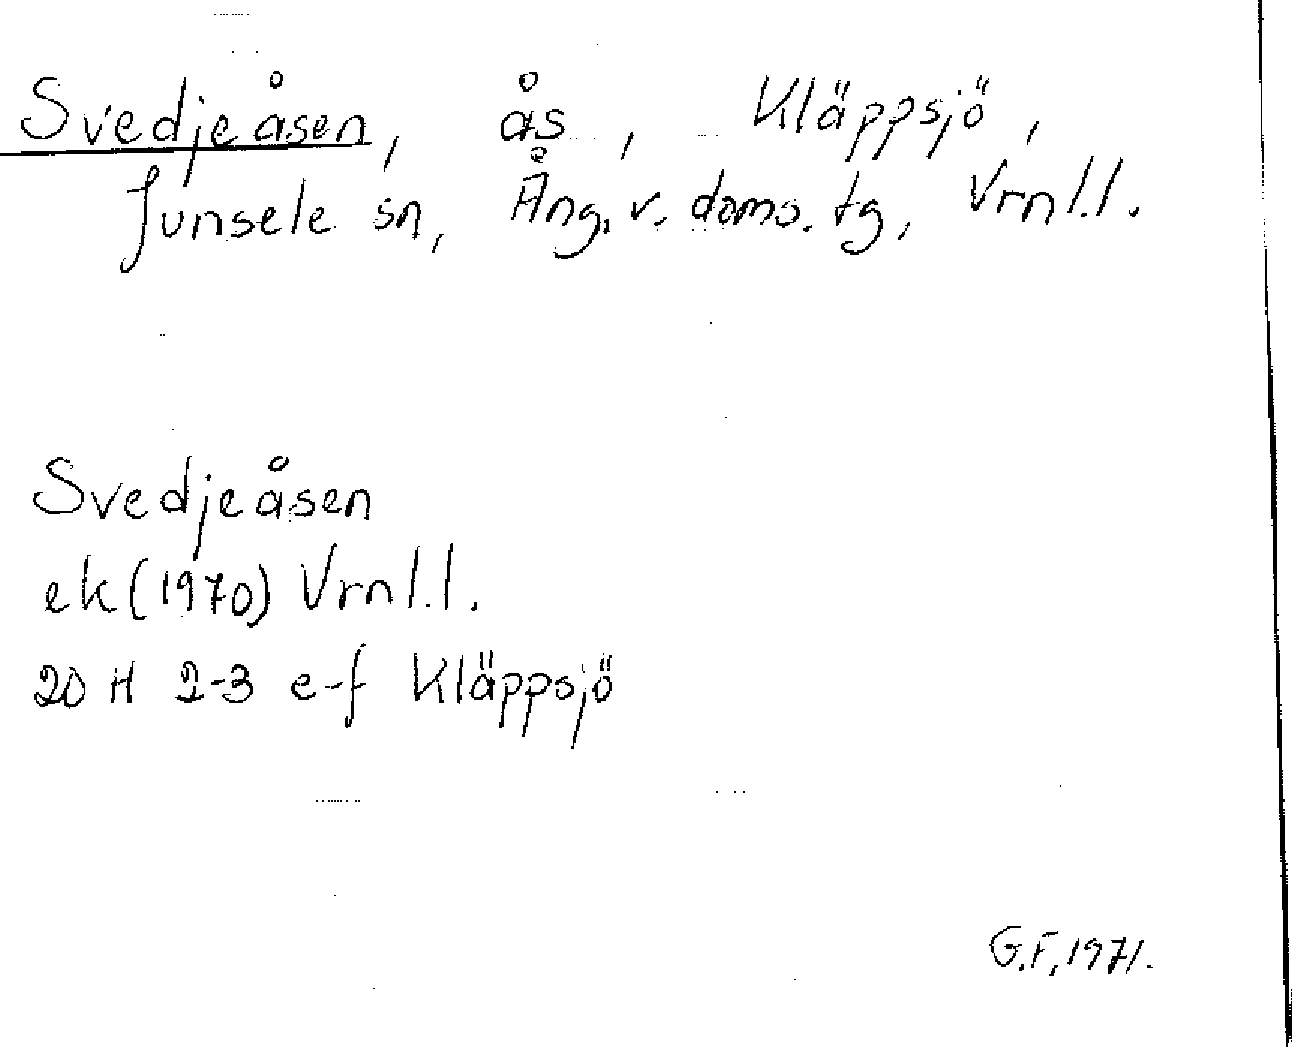 Svedjeåsen, ås, Kläppsjö,
Junsele sn, Ång. v. doms. tg, Vrnl.l.
Svedjeåsen
ek (1970) Vrnl.l.
20 H 2-3 e-f Kläppsjö
G.F, 1971.